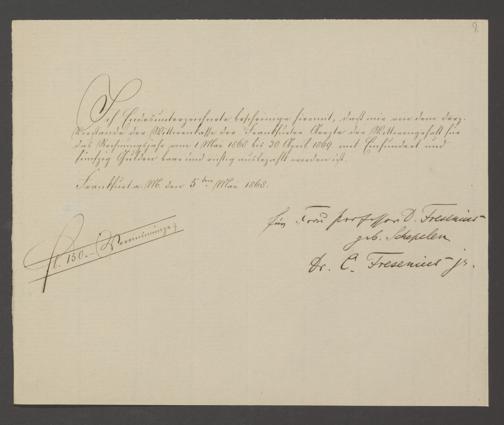 8.
Ich Endesunterzeichnete bescheinige hiermit, daß mir von dem derz.
Vorstande der Wittwenkasse der Frankfurter Aerzte der Wittwengehalt für
das Rechnungsjahr vom 1 Mai 1868 bis 30 April 1869 mit Einhundert und
fünfzig Gulden baar und richtig ausbezahlt worden ist.
Frankfurt a. M. den 5ten Mai 1868.
für Frau Professor D. Fresenius
geb.
Dr. C. Fresenius jr.
fl. 150.—